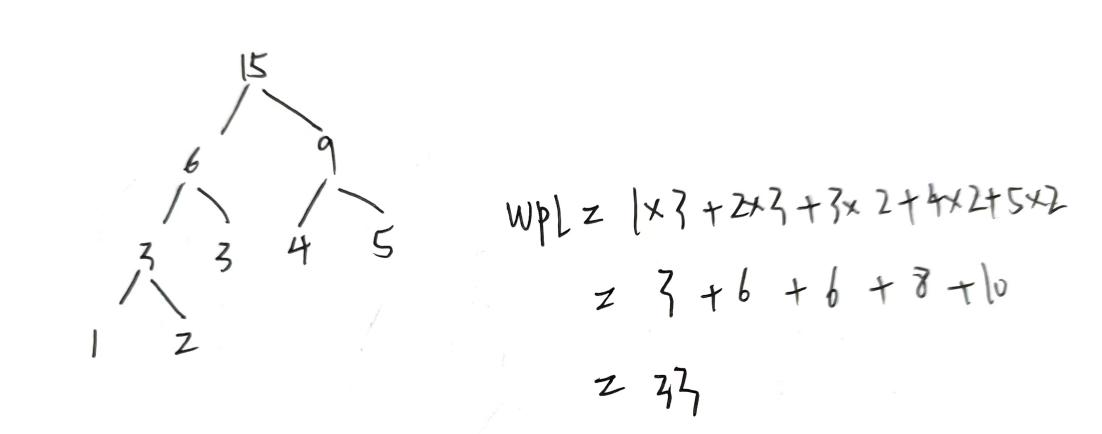 15
6 9
3 3 4 5
1 2
WPL = 1×3+2×3+3×2+4×2+5×2
= 3+6+6+8+10
= 33